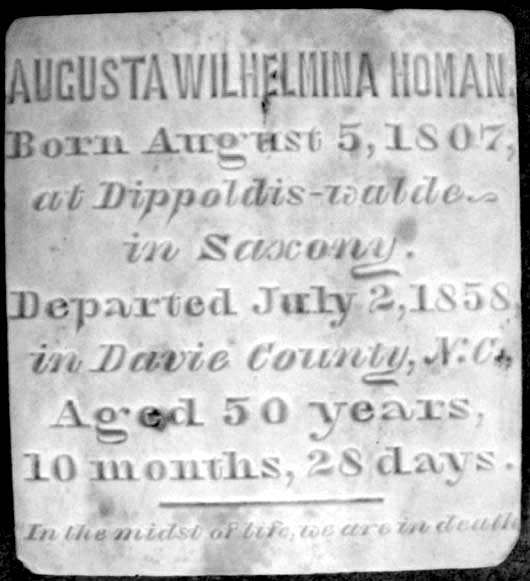 AUGUSTA WILHELMINA HOMAN.
Born August 5, 1807,
at Dippoldis-walde
in Saxony.
Departed July 2, 1858,
in Davie County, N.C.,
Aged 50 years,
10 months, 28 days.
In the midst of life, we are in death